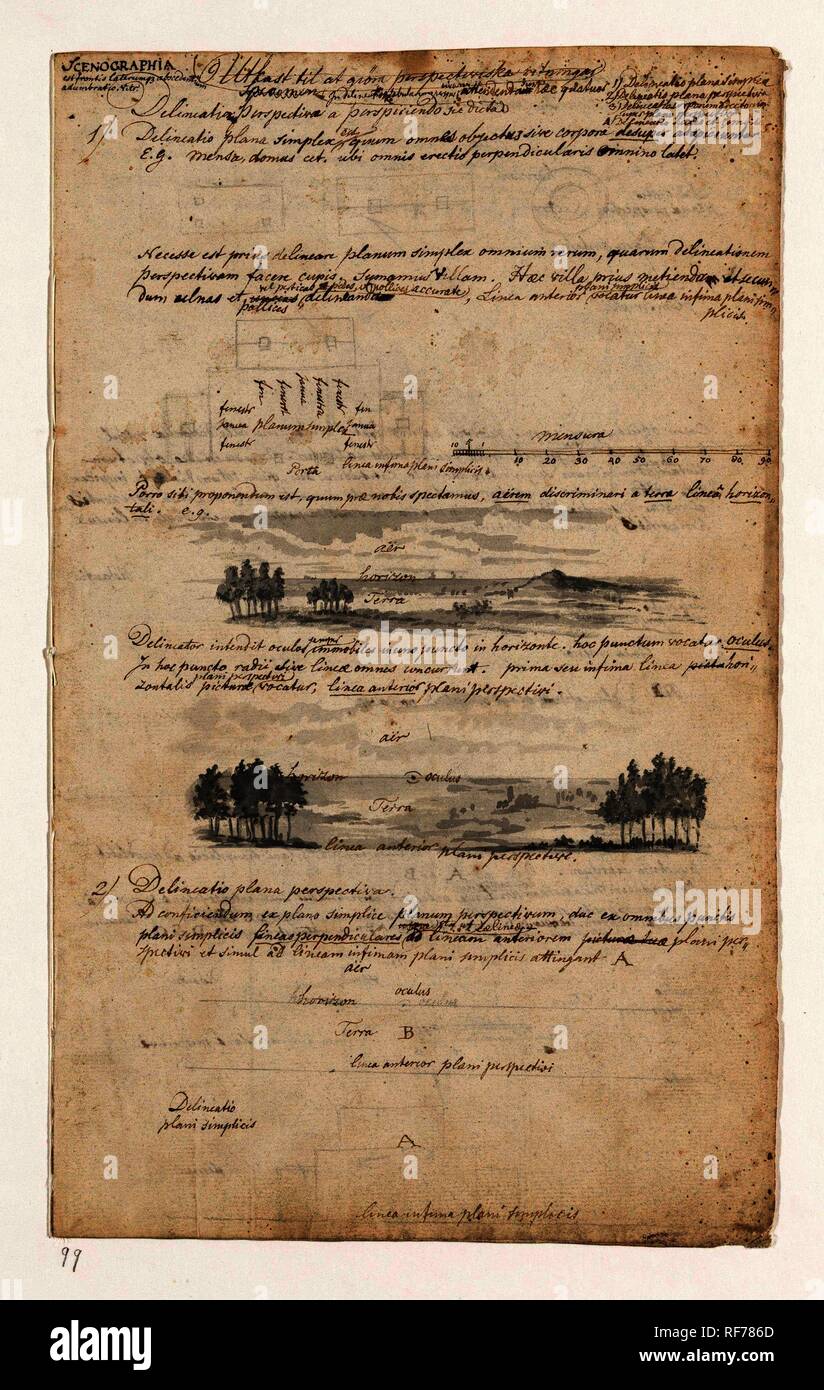 SCENOGRAPHIA
est frontis laterumq; abscedentium
adumbratio. Vitr.
Utkast til at giöra perspectiviska ritningar
1) Delineatio plana simplex
2) Delineatio plana perspectiva
Delineativa Perspectiva a perspiciendo sic dicta
1) Delineatio plana simplex est quum omnes objectus sive corpora desuper
E.g. mensa, domus cet. ubi omnis erectis perpendicularis omnino latet.
Necesse est prius delineare planum simplex omnium rerum, quarum delineationem
perspectivam facere cupis. Sumamus villam. Hæc villa prius metienda et secun
dum ulnas et pedes, et pollices accurate, Linea anterior vocatur linea infima plani sim
pollices
plani simplicis
plicis.
fenestr
fin
fenest
janua
fenestra
fenestr
fin
Janua planum simplex Janua
fenestr
fenestr
Porta
linea infima plani simplicis
mensura
10 5 1 10 20 30 40 50 60 70 80 90
Porro siti proponendum est, quum præ nobis spectamus, aërem discriminari a terra linea horizon-
tali. e.g.
aër
horizon
Terra
Delineator intendit oculos immobiles in uno puncto in horizonte. hoc punctum vocatur oculus.
In hoc puncto radii sive lineæ omnes concurrunt. prima seu infima linea picta hori
plani perspectivi
zontalis picturæ vocatur, linea anterior plani perspectivi.
aër
horizon oculus
Terra
linea anterior plani perspective.
2) Delineatio plana perspectiva.
Ad conficiendum ex plano simplice planum perspectivum, duc ex omnibus punctis
plani simplicis lineas perpendiculares ad lineam anteriorem picturæ tuæ plani per-
spectivi et simul ad lineam infimam plani simplicis attingant A
aër
horizon oculus oculus
Terra B
linea anterior plani perspectivi
Delineatio
plani simplicis
A
linea infima plani simplicis
99
alamy
alamy
Image ID: RF786D
www.alamy.com